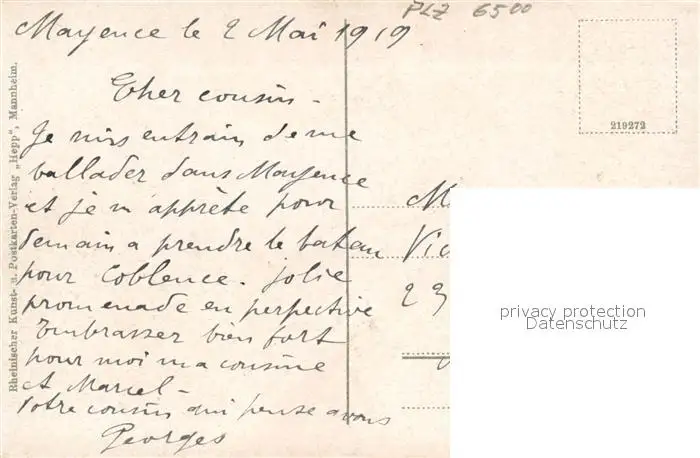 PLZ 6500
Mayence le 2 Mai 1919
Cher cousin -
Je suis entrain de me
ballader dans Mayence
et je m'apprète pour
demain a prendre le bateau
pour Coblence. jolie
promenade en perpective
Embrasser bien fort
pour moi ma cousine
et Marcel -
Votre cousin qui pense a vous
Georges
219272
M
Vic
23
privacy protection
Datenschutz
Rheinischer Kunst- u. Postkarten-Verlag „Hepp", Mannheim.